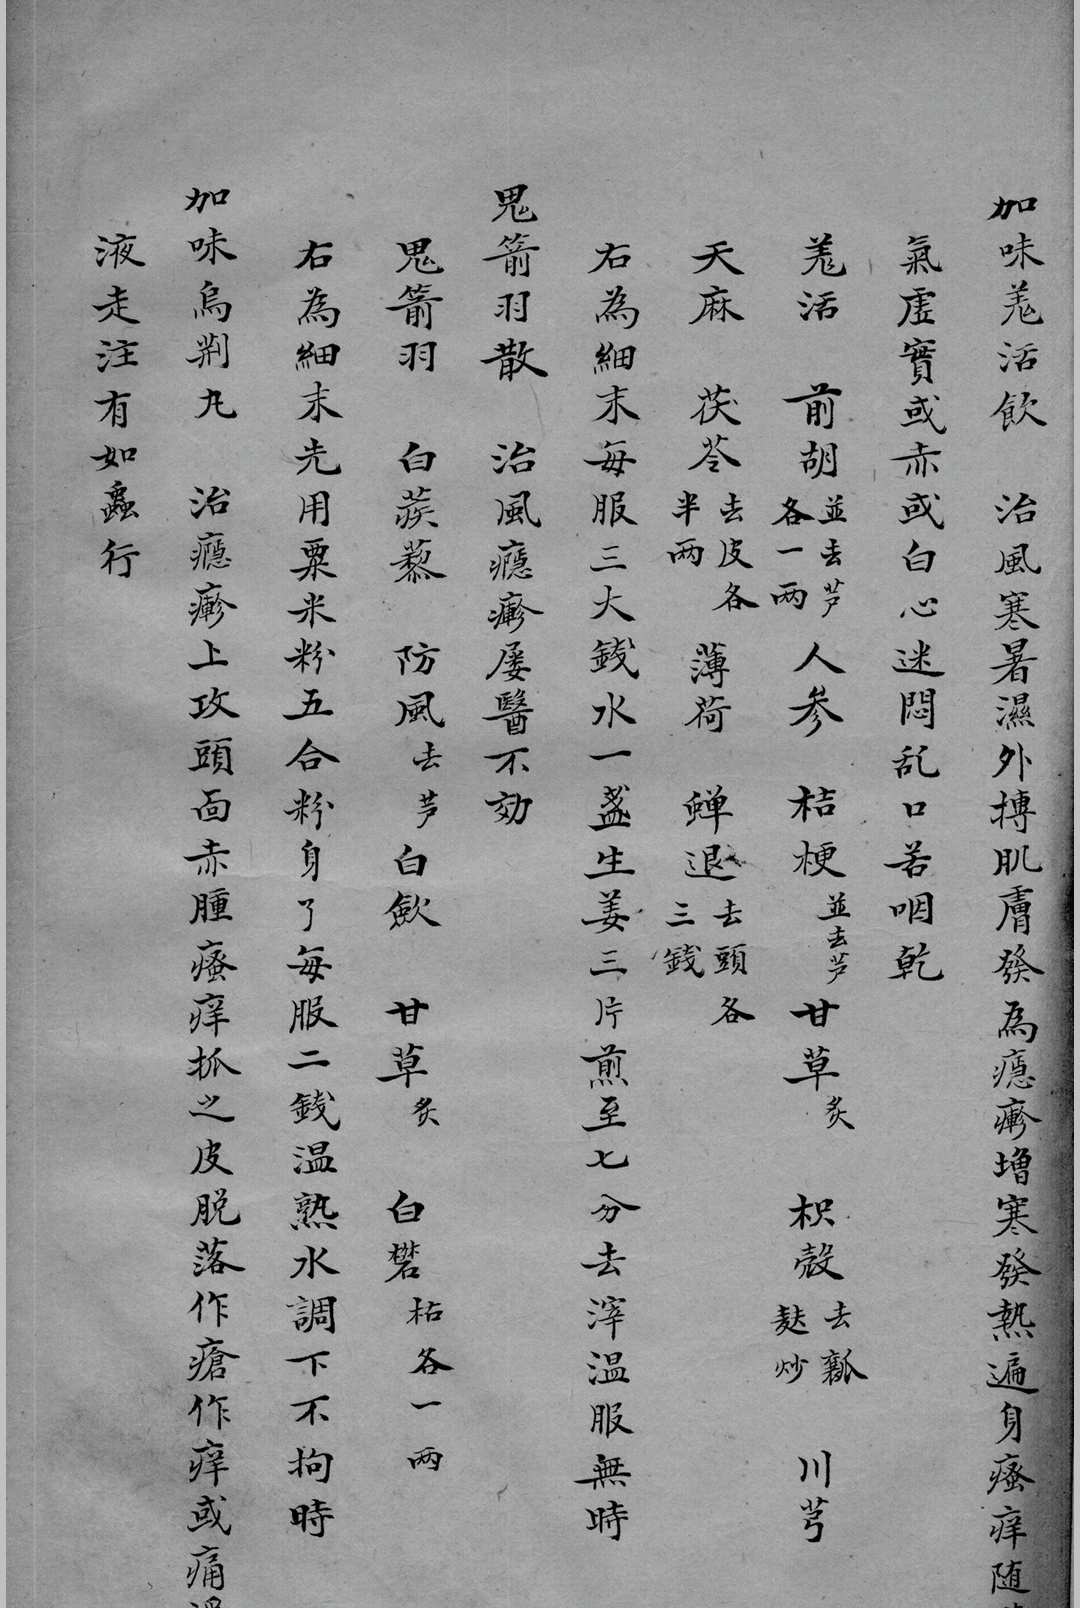 加味羗活飲　治風寒暑濕外搏肌膚發為癮癮增寒發熱遍身瘙痒随
氣虛實或赤或白心迷悶乱口苦咽乾
羗活　前胡並去芦各一两　人参　桔梗並去芦　甘草炙　枳殼去瓤麸炒　川芎
天麻　茯苓去皮各半两　薄荷　蝉退去頭各三錢
右為細末每服三大錢水一盞生姜三片煎至七分去滓温服無時
鬼箭羽散　治風癮疹屡醫不効
鬼箭羽　白蒺藜　防風去芦　白歛　甘草炙　白礬枯各一两
右為細末先用粟米粉五合粉身了每服二錢温熟水調下不拘時
加味烏荆丸　治癮疹上攻頭面赤腫瘙痒抓之皮脱落作瘡作痒或痛
液走注有如蟲行